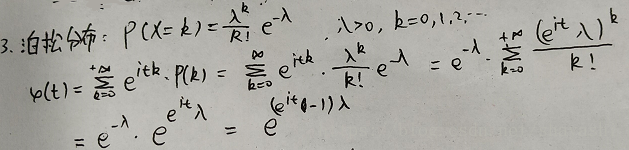 3. 泊松分布: P(X=k) = \frac{λ^k}{k!} e^{-λ} . λ>0, k=0,1,2,...
φ(t) = \sum_{k=0}^{+∞} e^{itk} · P(k) = \sum_{k=0}^{∞} e^{itk} · \frac{λ^k}{k!} e^{-λ} = e^{-λ} · \sum_{k=0}^{+∞} \frac{(e^{it} λ)^k}{k!}
= e^{-λ} · e^{e^{it} λ} = e^{(e^{it}-1)λ}